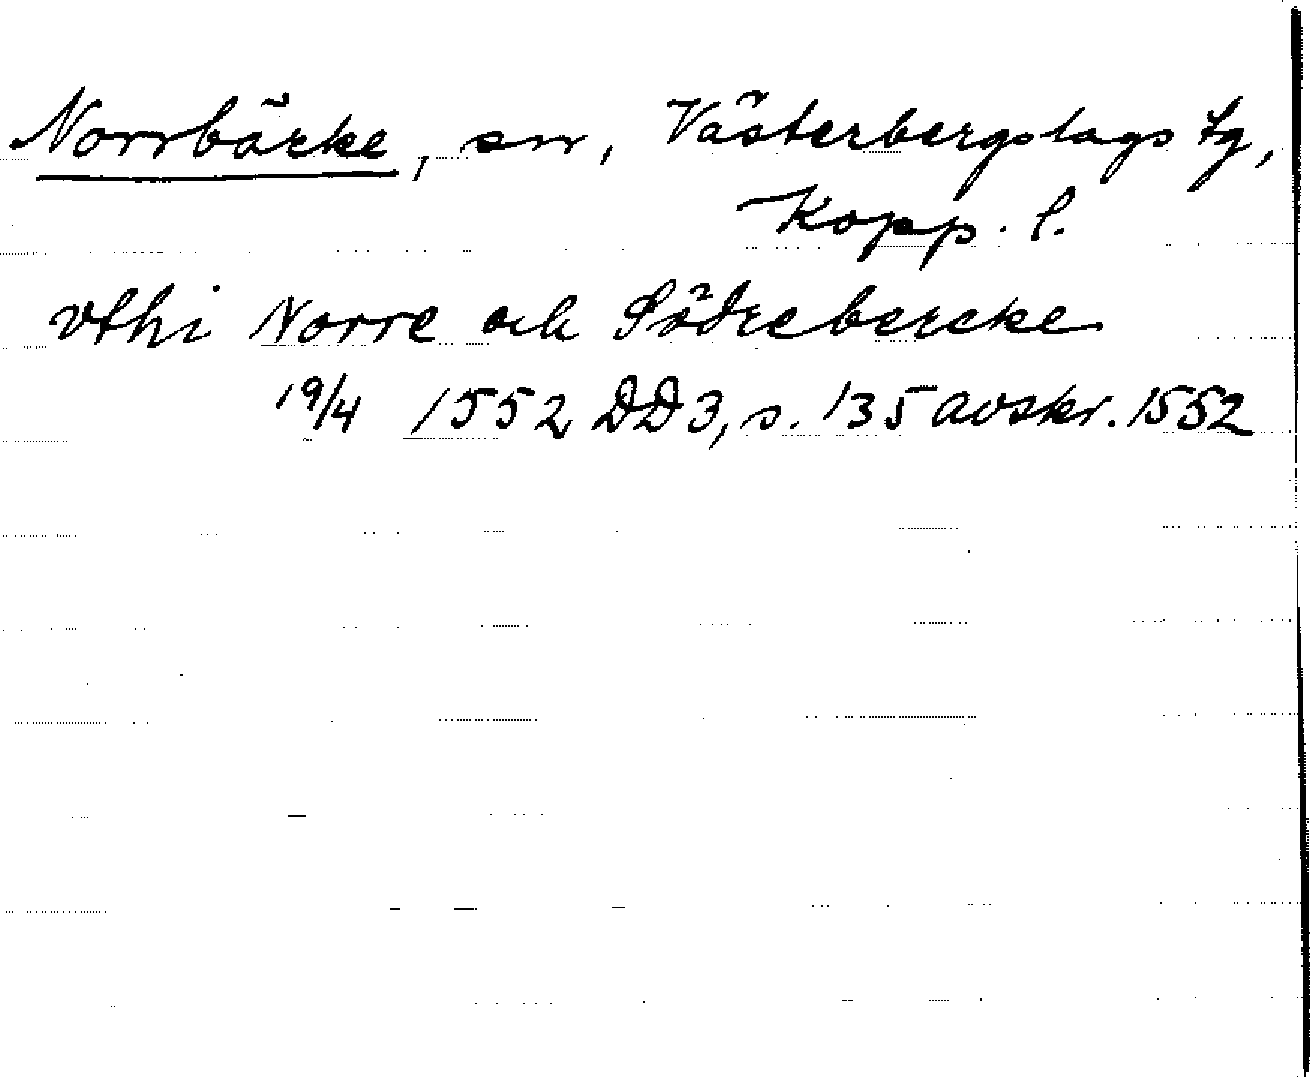 Norrbärke, sn, Västerbergslags tg,
Kopp. l.
vthi Norre och Södrebercke
19/4 1552 DD3, s. 135 avskr. 1552